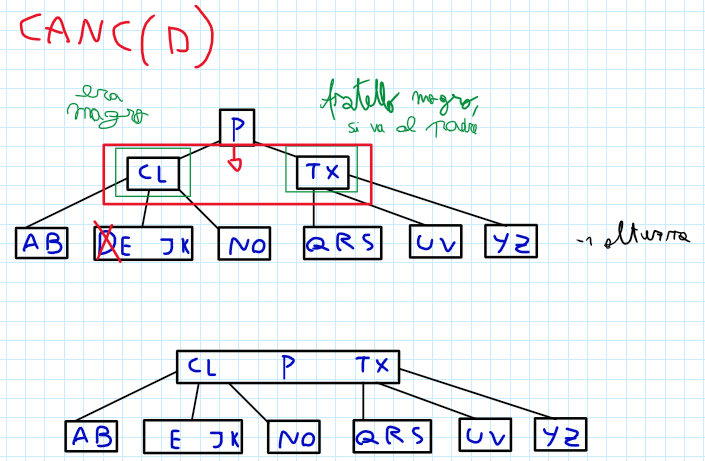 CANC(D)
era
magro
fratello magro,
si va al padre
P
CL
TX
AB
DE JK
NO
QRS
UV
YZ
-1 altezza
CL P TX
AB
E JK
NO
QRS
UV
YZ